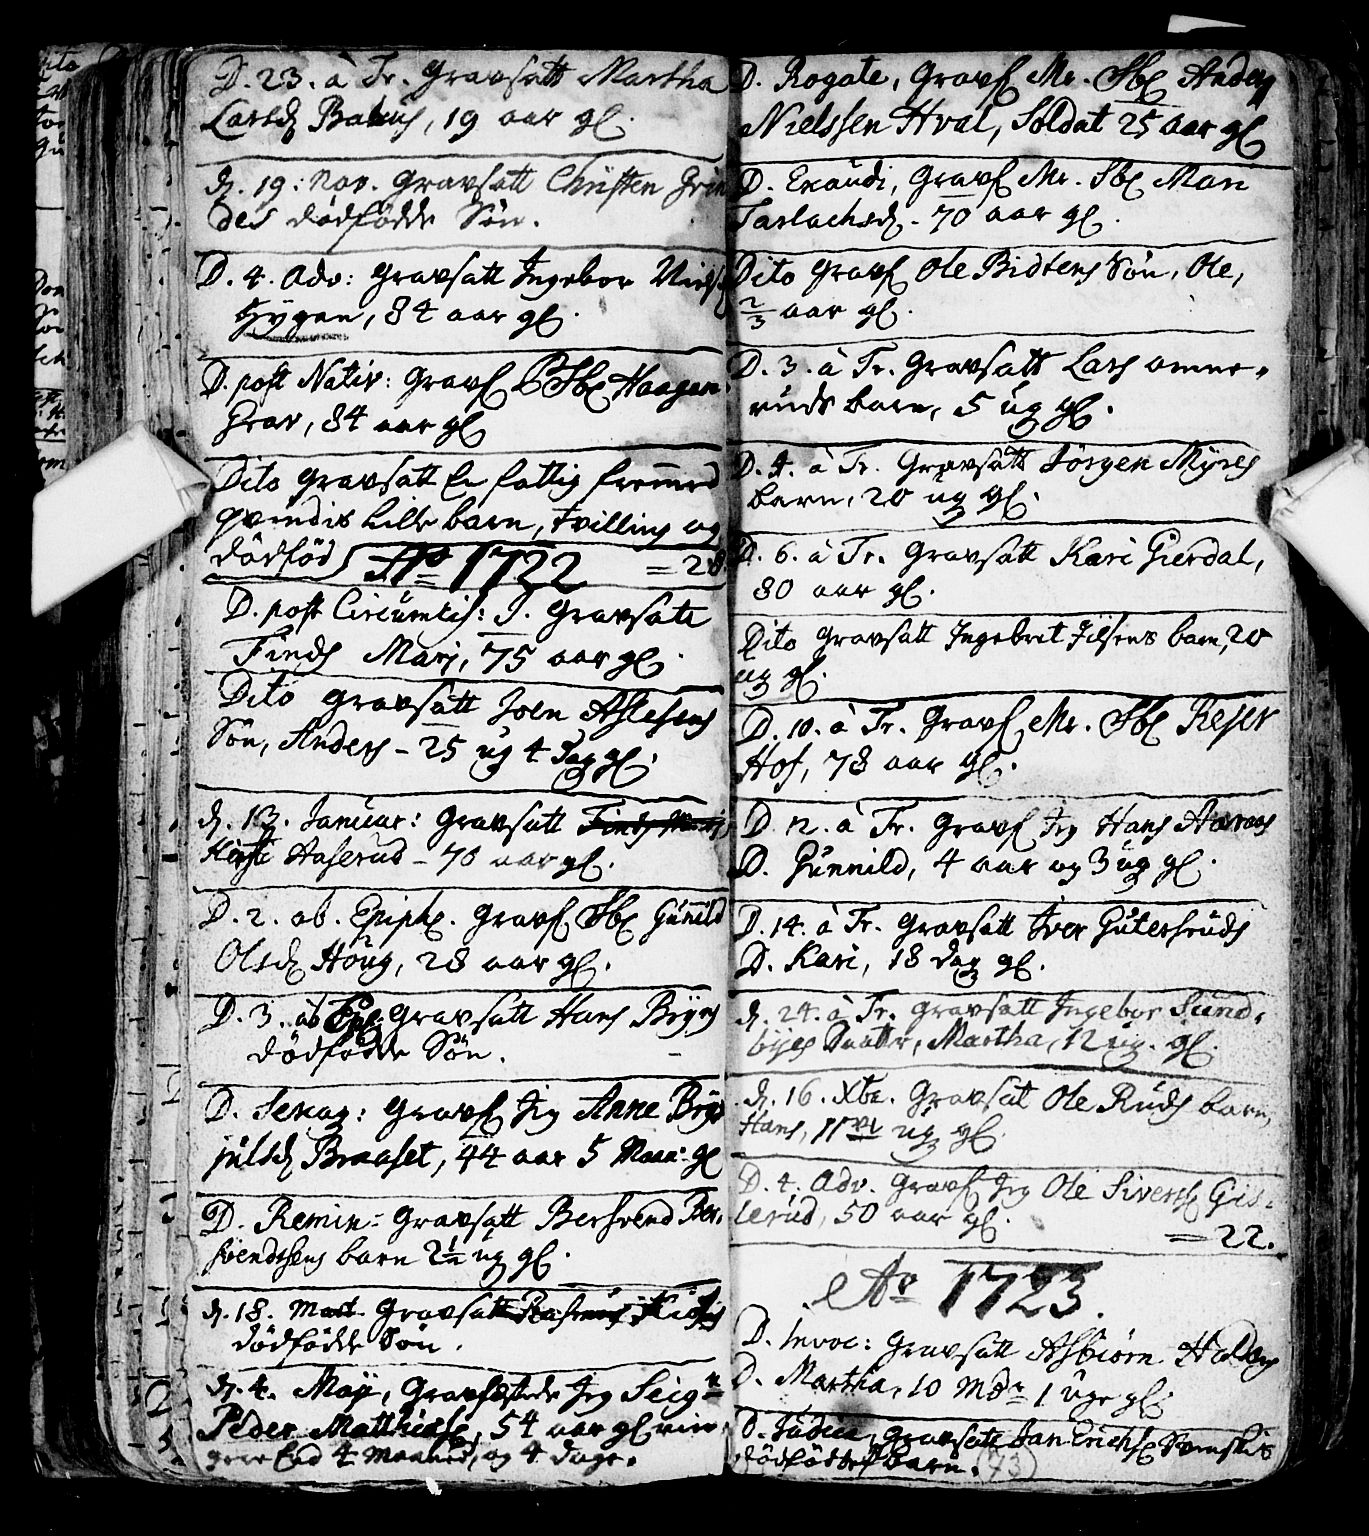 D. 23. à Tr. Gravsatt Martha
Larsd Bakus, 19 aar gl.
d. 19. Nov. Gravsatt Christen Grin
des dödfödde Sön.
D. 4. Adv: Gravsatt Ingebor Niels
Hygen, 84 aar gl.
D. post Nativ: Gravs Sbl Haagen
Grav, 84 aar gl
Dito Gravsatt En fattig fremmed
qvindis lille barn, tvilling og
dödföd
Ao 1722 = 28
D. post Circumcis: J. Gravsatt
Finds Mari, 75 aar gl.
Dito gravsatt Joen Aslesens
Sön, Anders - 25 ug 4 Dag gl.
d. 13. Januar: Gravsatt
Kirsti Haserud - 70 aar gl.
D. 2. ab. Epiph. Gravs Sbl Gunild
Olsd Houg, 28 aar gl.
D. 3. ab Eph Gravsatt Hans Bryns
dödfödde Sön.
D. Sexag: Gravs Jeg Anne Bryn
julsd Braaset, 44 aar 5 Maan: gl
D. Remin= Gravsatt Bersvend Ber,
svendsens barn 2½ ug gl.
d. 18. Mart. Gravsatt
dödfödde Sön.
d. 4. Maji, Gravsattede Jeg Seigr
Peder Matthiass, 54 aar gl min,
gere End 4 Maaned, og 4 dage.
D. Rogate, Gravs Mr. Sbl Anders
Nielssen Hval, Soldat 25 aar gl
D. Exaudi, Gravs Mr. Sbl Mari
Tarlachsd. 70 aar gl.
Dito Gravs Ole Bidtens Sön, Ole,
2/3 aar gl.
D. 3. à Tr. Gravsatt Lars omme,
ruds barn, 5 ug gl.
D. 4. à Tr. Gravsatt Jörgen Myres
barn, 20 ug gl.
D. 6. à Tr. Gravsatt Kari Gierdal,
80 aar gl.
Dito Gravsatt Ingebret Jilsens barn, 20
ug gl.
D. 10. à Tr. Gravs Mr. Sbl Rejer
Hof, 78 aar gl.
D. 12. à Tr. Gravs Jeg Hans Aaraas
D. Gunnild, 4 aar og 3 ug gl.
D. 14. à Tr. Gravsatt Iver Gutersruds
D. Kari, 18 Dag gl.
d. 24. à Tr. Gravsatt Ingebor Sund,
byes Daatter, Martha, 12 ug. gl.
d. 16. Xbr. Gravsat Ole Ruds barn,
Hans, 11 ug gl
D. 4. Adv. Gravs Jeg Ole Sivers Gis,
lerud, 50 aar gl.
= 22.
Ao 1723.
D. Invoc: Gravsatt Asbiörn Halders
D. Martha, 10 Mdr 1 uge gl.
D. Judica, Gravsatt Jan Erichs Svenskes
dödfödde barn. (73)